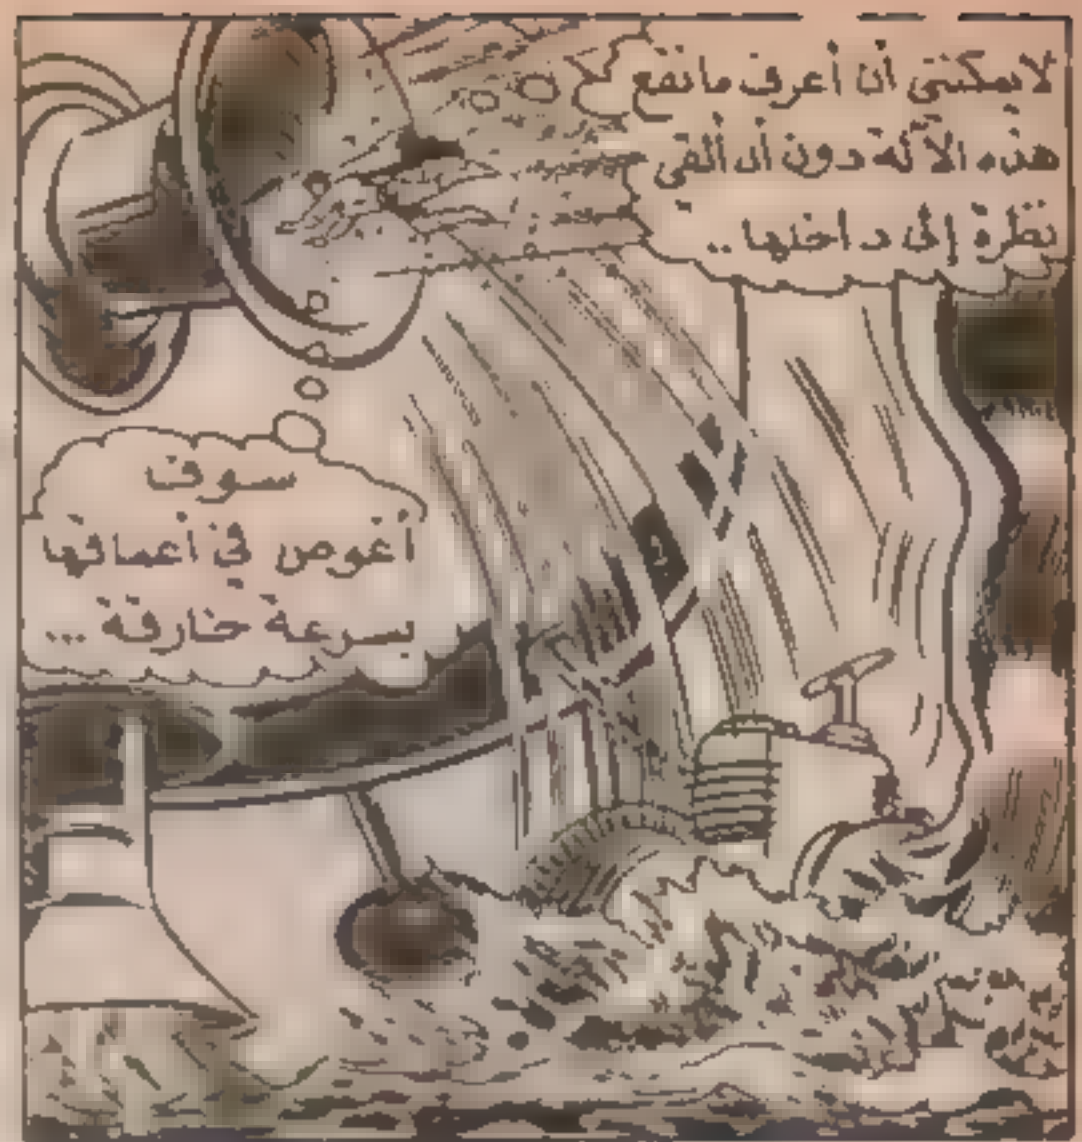 لا يمكنني أن أعرف ما نفع
هذه الآلة دون أن ألقي
نظرة إلى داخلها ..
سوف
أغوص في أعماقها
بسرعة خارقة ...